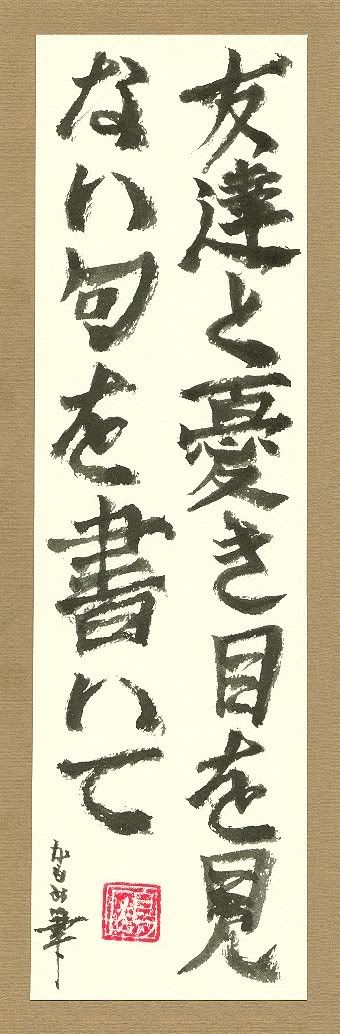 友達と憂き目を見
ない句を書いて
かもめ筆